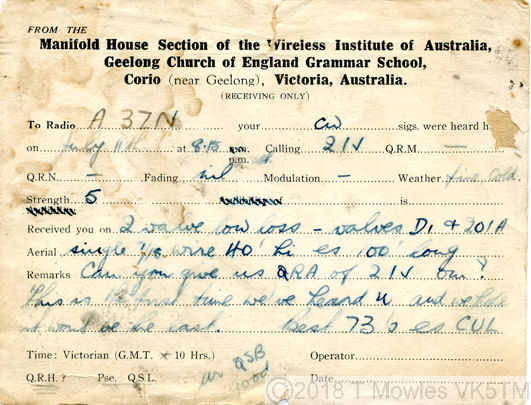 FROM THE
Manifold House Section of the Wireless Institute of Australia,
Geelong Church of England Grammar School,
Corio (near Geelong), Victoria, Australia.
(RECEIVING ONLY)
To Radio A 3ZN your CW sigs. were heard h
on July 11th at 8.15 p.m. Calling 2IV Q.R.M. —
Q.R.N. — Fading nil Modulation — Weather fine cold.
Strength 5 is
Received you on 2 valve low loss – valves D1 & 201A
Aerial single 7/18 wire 40' hi es 100' long
Remarks Can you give us QRA of 2IV om?
This is the first time we've heard u and we hope
it won't be the last. Best 73's es CUL
Time: Victorian (G.M.T. + 10 Hrs.) Operator
ur QSB
good
Q.R.H.? Pse. Q.S.L. Date
©2018 T Mowles VK5TM